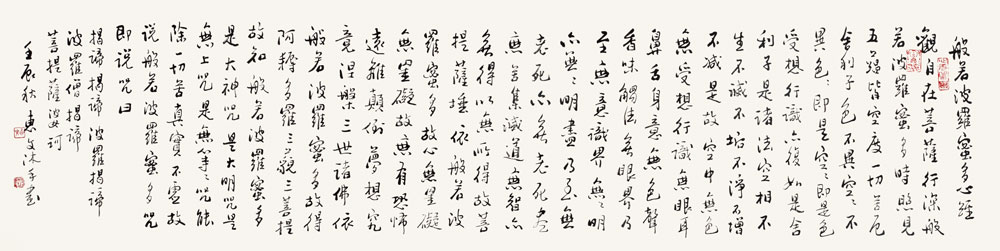 般若波羅蜜多心經
觀自在菩薩行深般
若波羅蜜多時照見
五蘊皆空度一切苦厄
舍利子色不異空々不
異色々即是空々即是色
受想行識亦復如是舍
利子是諸法空相不
生不滅不垢不淨不增
不減是故空中無色
無受想行識無眼耳
鼻舌身意無色聲
香味觸法無眼界乃
至無意識界無々明
亦無々明盡乃至無
老死亦無老死盡
無苦集滅道無智亦
無得以無所得故菩
提薩埵依般若波
羅蜜多故心無罣礙
無罣礙故無有恐怖
遠離顛倒夢想究
竟涅槃三世諸佛依
般若波羅蜜多故得
阿耨多羅三藐三菩提
故知般若波羅蜜多
是大神咒是大明咒是
無上咒是無等々咒能
除一切苦真實不虛故
說般若波羅蜜多咒
即說咒曰
揭諦揭諦波羅揭諦
波羅僧揭諦
菩提薩婆訶
壬辰秋惠文沐手書